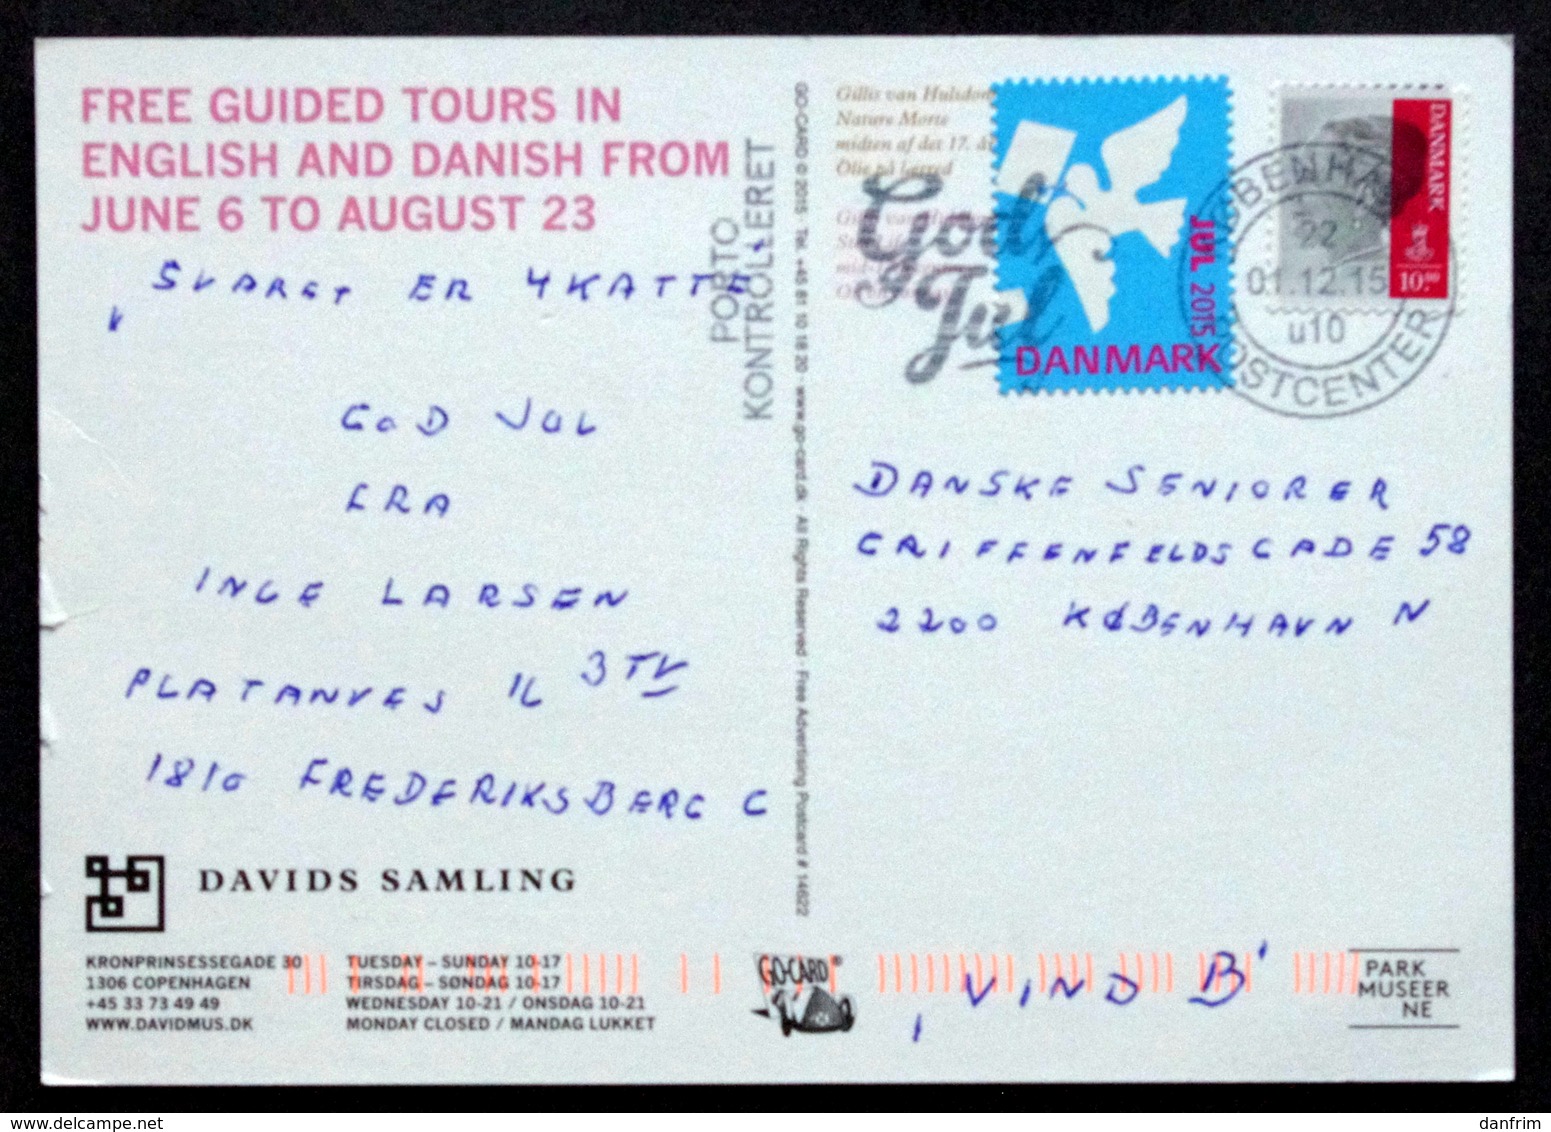 FREE GUIDED TOURS IN
ENGLISH AND DANISH FROM
JUNE 6 TO AUGUST 23
SVARET ER 4 KATTE
GOD JUL
FRA
INGE LARSEN
PLATANVEJ 3 TV
1810 FREDERIKSBERG C
DAVIDS SAMLING
KRONPRINSESSEGADE 30
1306 COPENHAGEN
+45 33 73 49 49
WWW.DAVIDMUS.DK
TUESDAY – SUNDAY 10-17
TIRSDAG – SØNDAG 10-17
WEDNESDAY 10-21 / ONSDAG 10-21
MONDAY CLOSED / MANDAG LUKKET
PORTO
KONTROLLERET
GO-CARD © 2015 · Tel. +45 81 10 18 20 · www.go-card.dk · All Rights Reserved · Free Advertising Postcard # 14622
Gillis van Hulsdonck
Nature Morte
midten af det 17. år
Olie på lærred
God Jul
JUL 2015
DANMARK
DANMARK
10.00
KØBENHAVNS
22
01.12.15
u10
POSTCENTER
DANSKE SENIORER
GRIFFENFELDSGADE 58
2200 KØBENHAVN N
GO-CARD®
VIND B
PARK
MUSEER
NE
danfrim